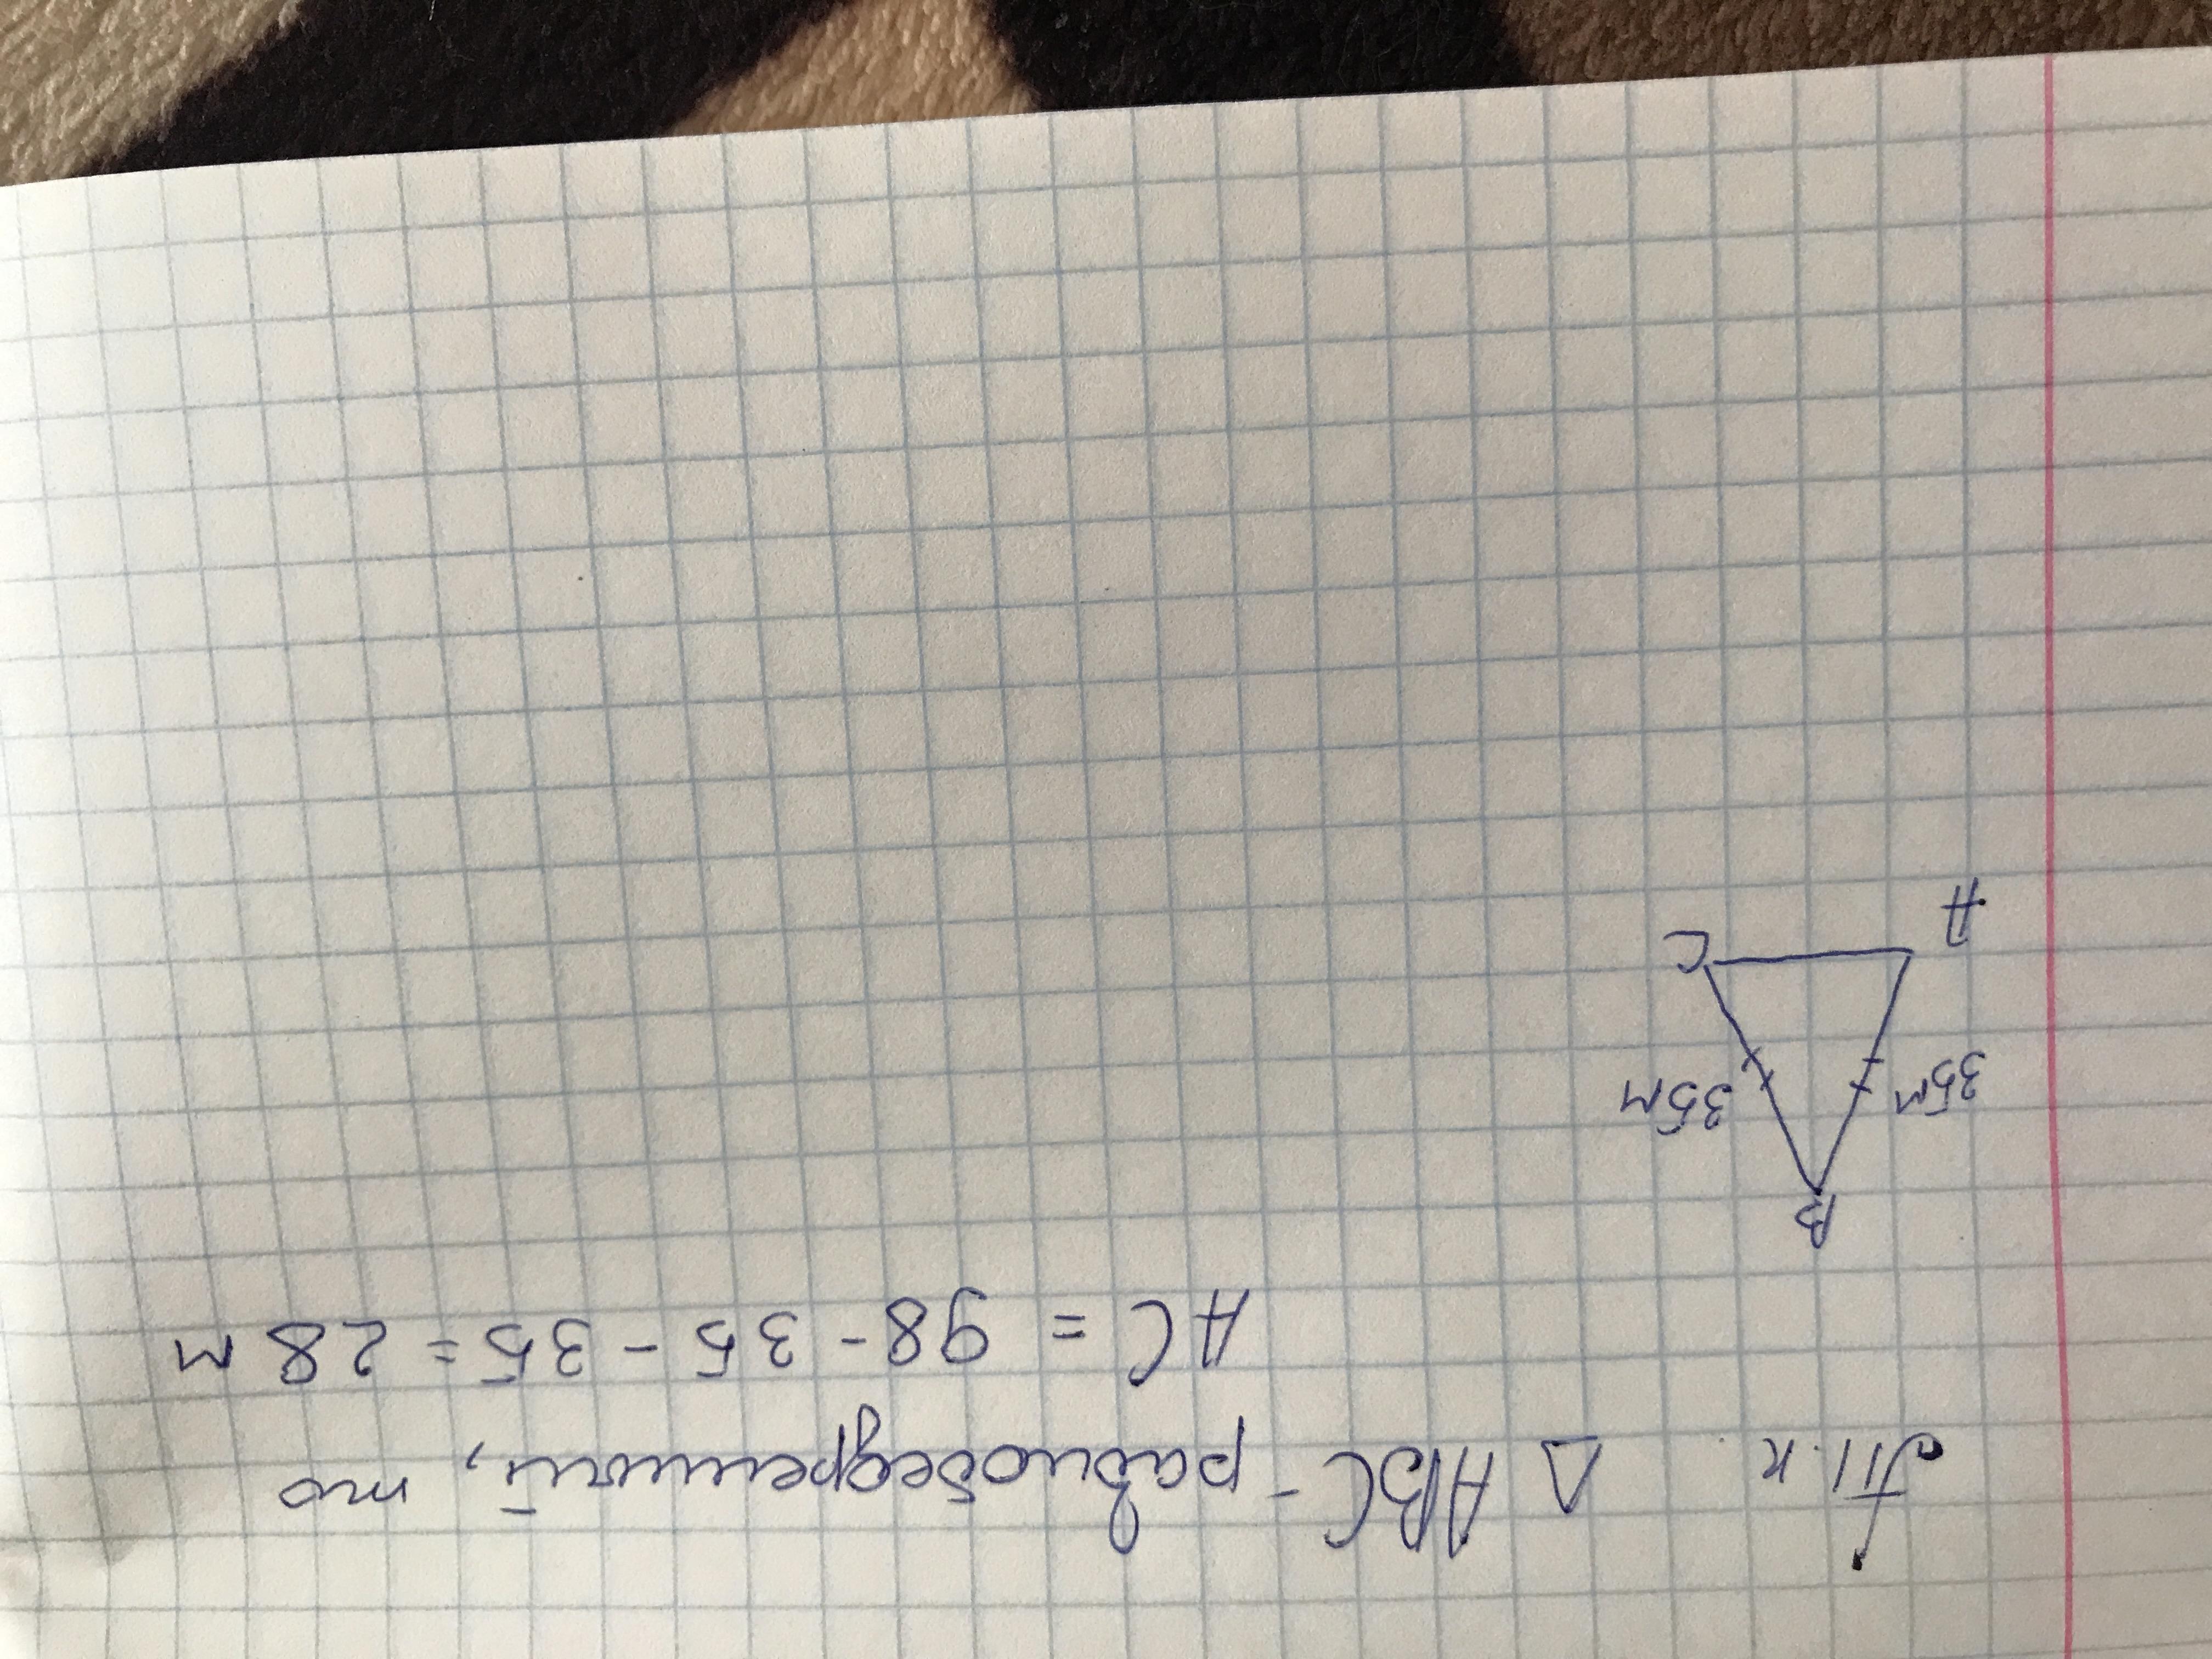 Т.к. △ ABC - равнобедренный, то
AC = 98 - 35 - 35 = 28 м
B
35м
35м
A
C